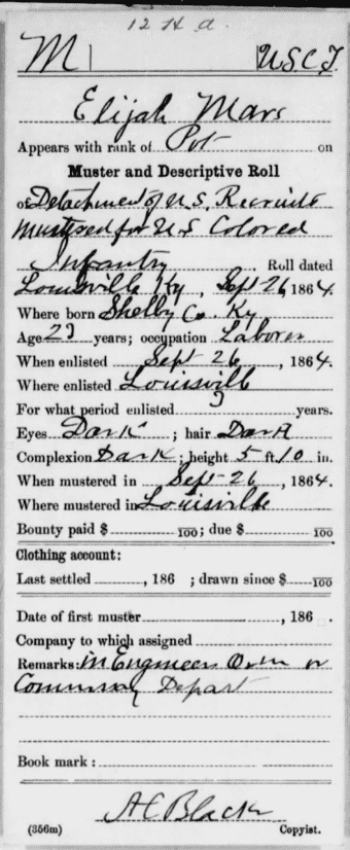 12 H a
M | U.S.C.T.
Elijah Mars
Appears with rank of Pvt on
Muster and Descriptive Roll
of Detachment of U.S. Recruits
Mustered for U S Colored
Infantry Roll dated
Louisville Ky, Sept 26, 1864.
Where born Shelby Co. Ky
Age 23 years; occupation Laborer
When enlisted Sept 26, 1864.
Where enlisted Louisville
For what period enlisted 3 years.
Eyes Dark; hair Dark
Complexion Dark; height 5 ft. 10 in.
When mustered in Sept 26, 1864.
Where mustered in Louisville
Bounty paid $ 100; due $ 100
Clothing account:
Last settled , 186 ; drawn since $ 100
Date of first muster , 186 .
Company to which assigned
Remarks: In Engineer or
Commissary Depart
Book mark:
A C Black
(356m) Copyist.